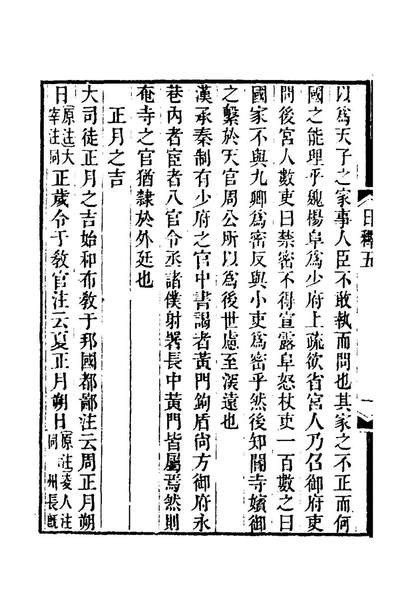 以爲天子之家事人臣不敢執而問也其家之不正而何
國之能理乎魏楊阜爲少府上疏欲省宮人乃召御府吏
問後宮人數吏曰禁密不得宣露阜怒杖吏一百數之曰
國家不與九卿爲密反與小吏爲密乎然後知閽寺嬪御
之繫於天官周公所以爲後世慮至深遠也
漢承秦制有少府之官中書謁者黃門鉤盾尚方御府永
巷內者宦者八官令丞諸僕射署長中黃門皆屬焉然則
奄寺之官猶隸於外廷也
正月之吉
大司徒正月之吉始和布敎于邦國都鄙注云周正月朔
日原注大宰注同正歲令于敎官注云夏正月朔日原注凌人注同州長旣
日釋五
一